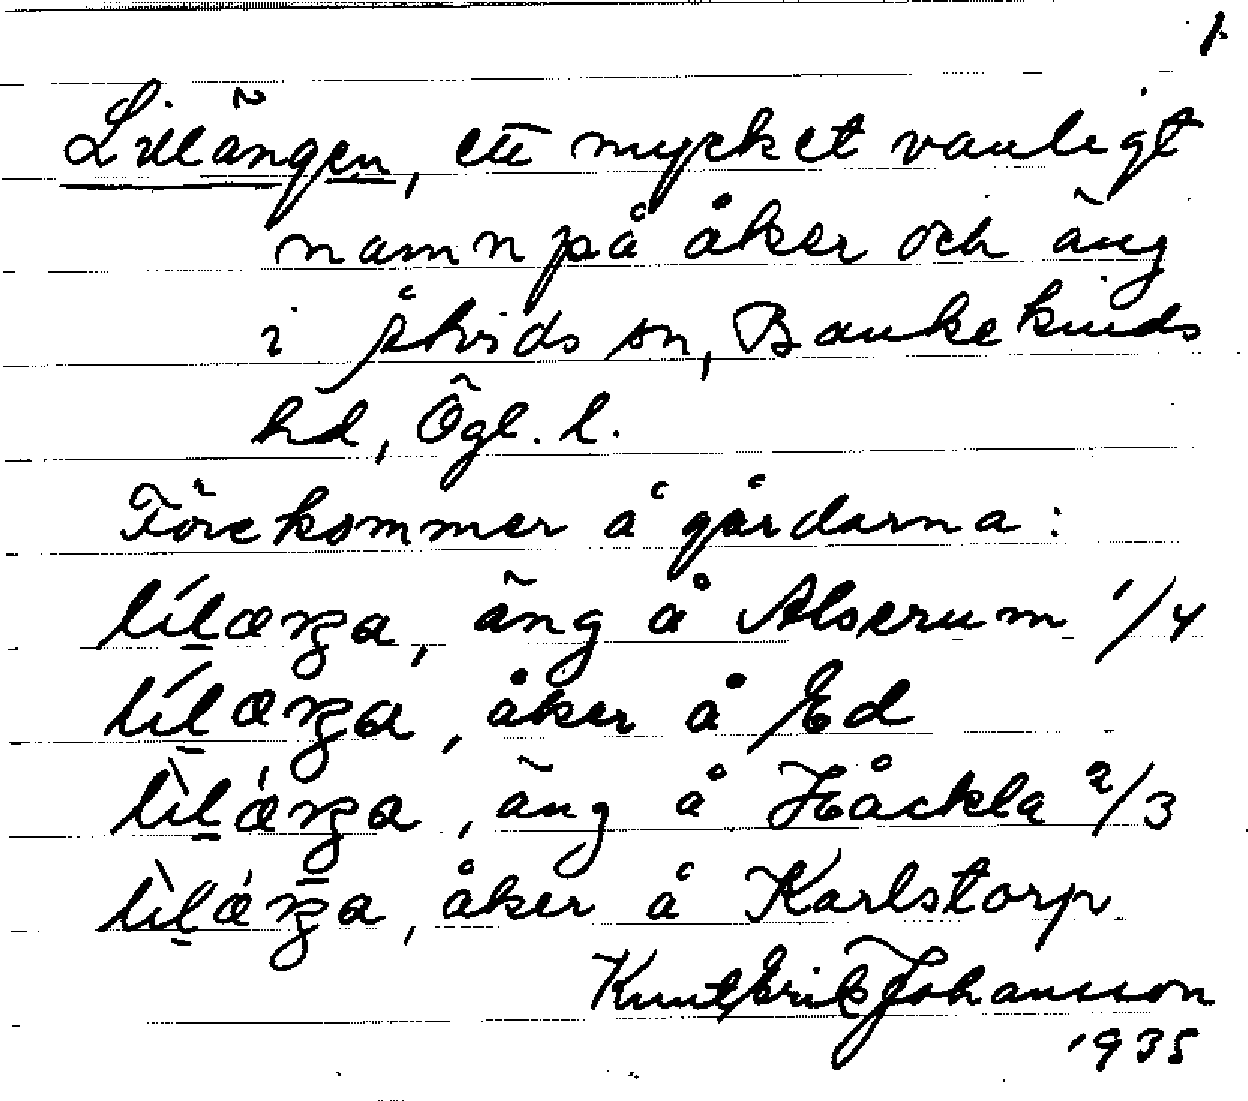 1.
Lillängen, ett mycket vanligt
namn på åker och äng
i Åtvids sn, Bankekinds
hd, Ögl. l.
Förekommer å gårdarna:
lílæŋa, äng å Alserum 1/4
lílæŋa, åker å Ed
lìlǽŋa, äng å Håckla 2/3
lìlǽŋa, åker å Karlstorp
Knut Erik Johansson
1935